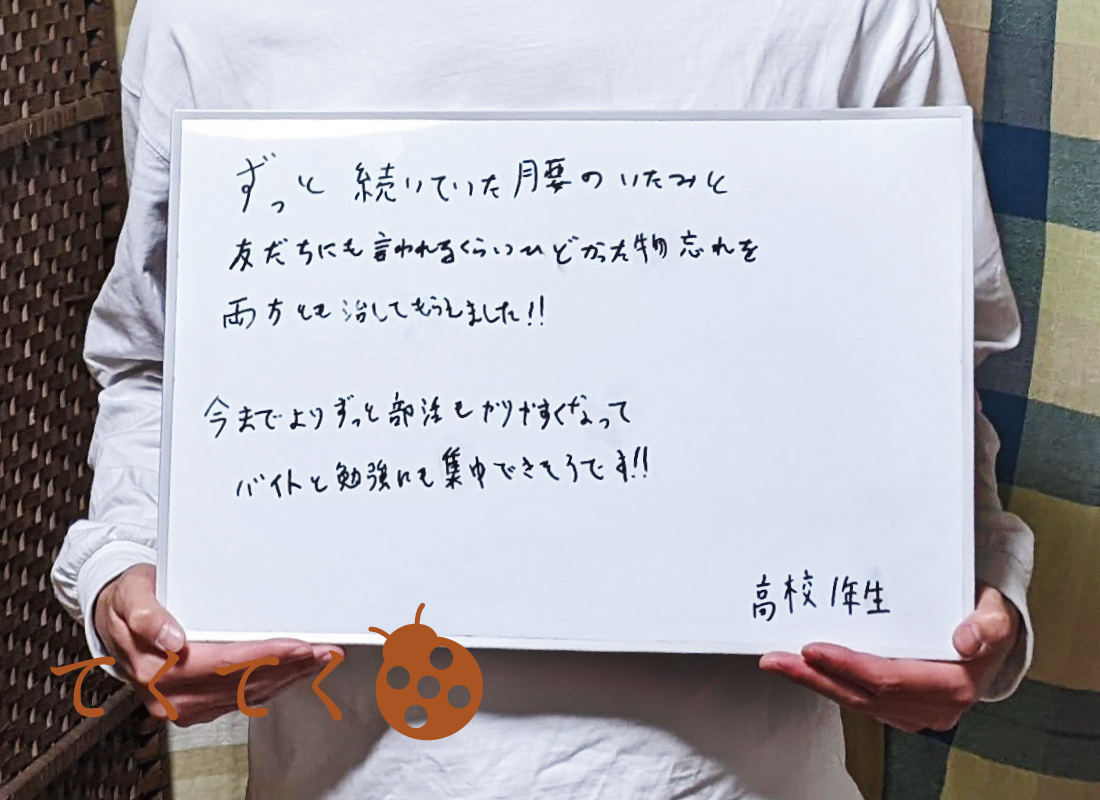 ずっと続いていた腰のいたみと
友だちにも言われるくらいひどかった物忘れを
両方とも治してもらえました!!
今までよりずっと部活もやりやすくなって
バイトと勉強にも集中できそうです!!
高校1年生
てくてく